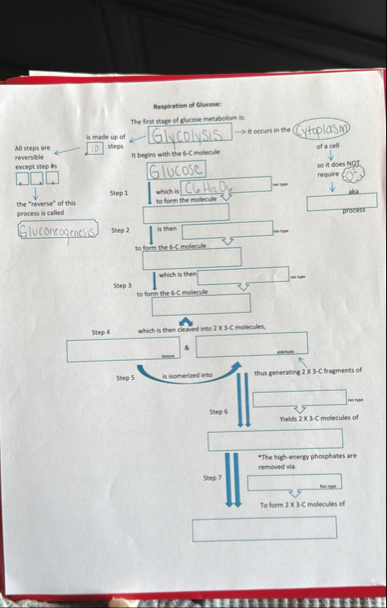 Respiration of Glucose:
The first stage of glucose metabolism is:
is made up of
10 steps
Glycolysis
It occurs in the
Cytoplasm
of a cell
so it does NOT
require
O₂
aka
process
All steps are
reversible
except step #s
the "reverse" of this
process is called
Gluconeogenesis
It begins with the 6-C molecule
Glucose
Step 1
which is
C6 H12 O6
rxn type
to form the molecule
Step 2
is then
rxn type
to form the 6-C molecule
which is then
rxn type
Step 3
to form the 6-C molecule
Step 4
which is then cleaved into 2 X 3-C molecules,
&
ketone
aldehyde
Step 5
is isomerized into
thus generating 2 X 3-C fragments of
rxn type
Step 6
Yields 2 X 3-C molecules of
*The high-energy phosphates are
removed via
Step 7
Rxn type
To form 2 X 3-C molecules of